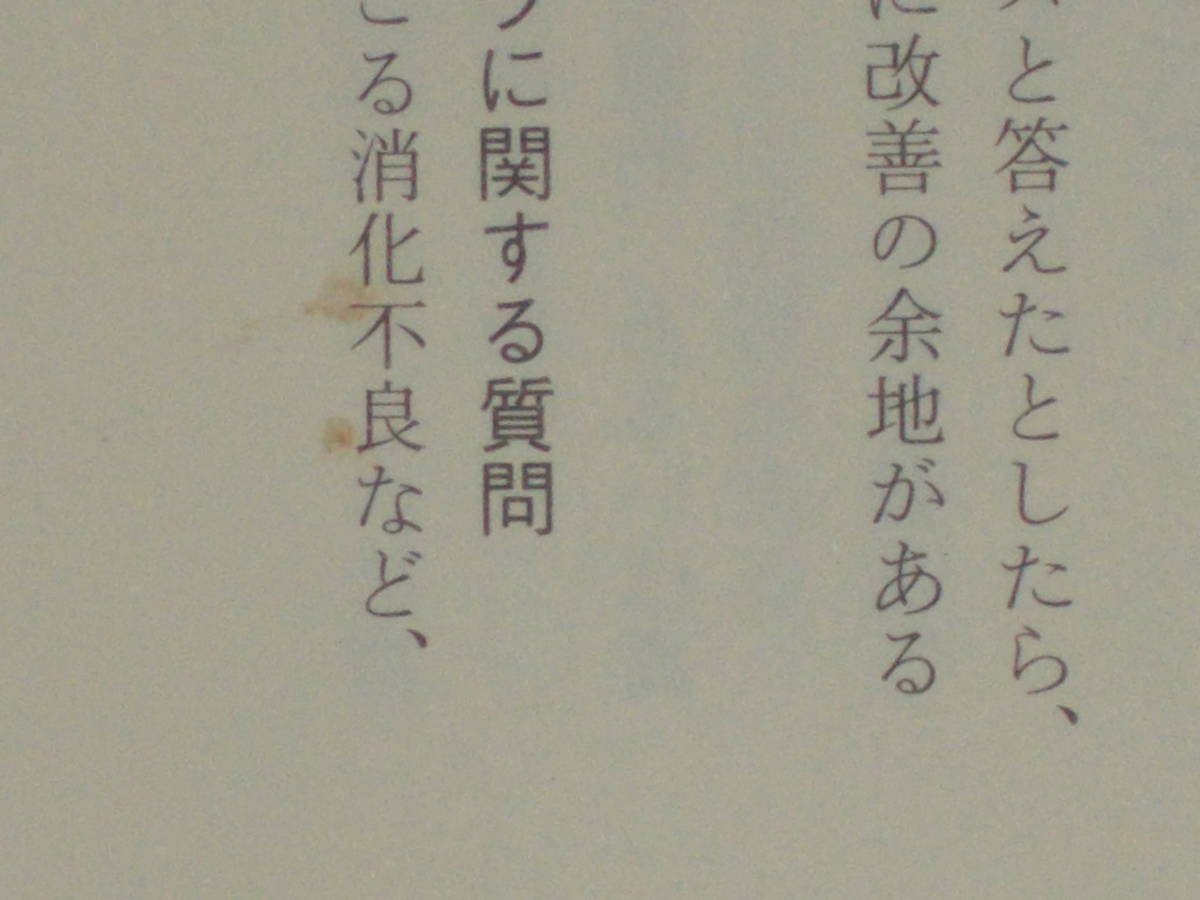 と答えたとしたら、
に改善の余地がある
に関する質問
る消化不良など、